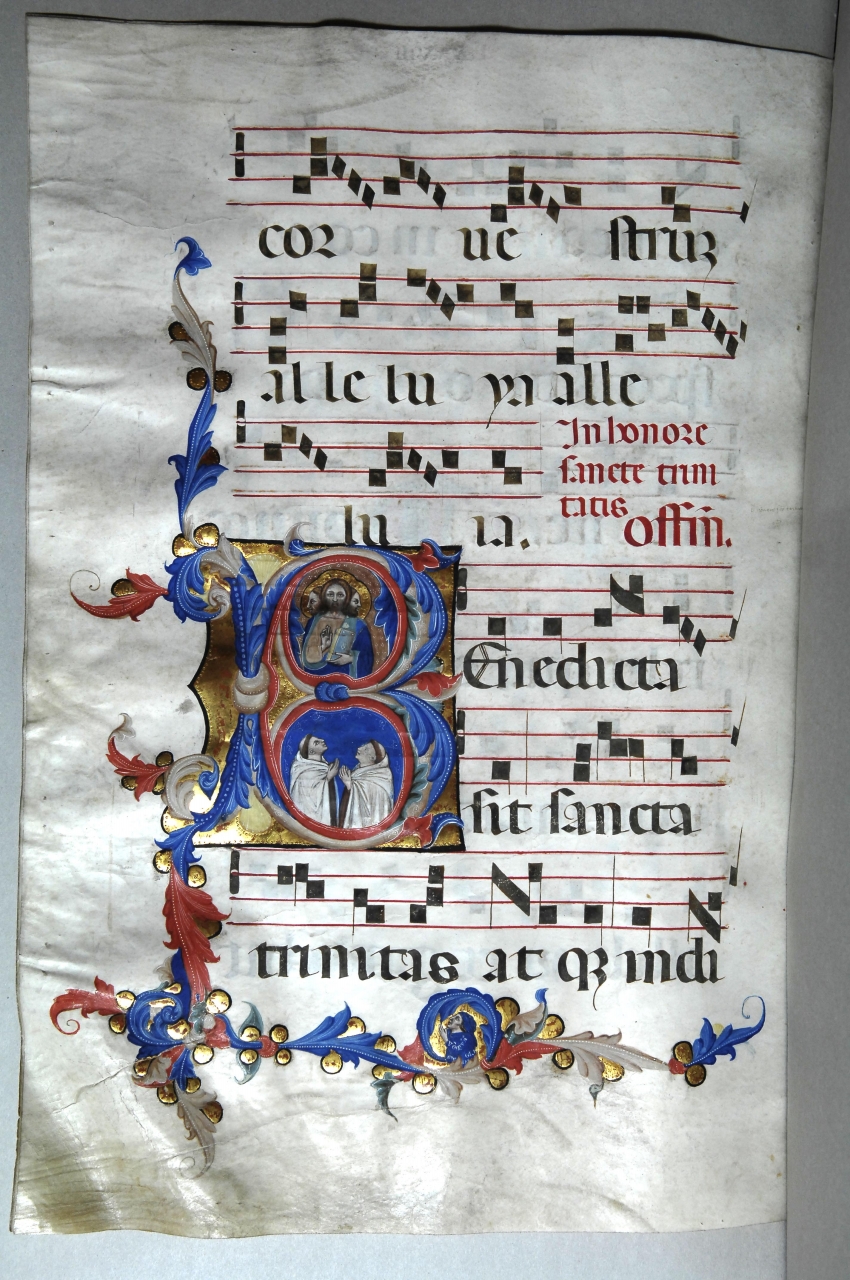 cor ue strũ
al le lu ya alle
In honore
sancte trini
tatis
lu ia. Offim̃.
Benedicta
sit sancta
trinitas at qȝ indi